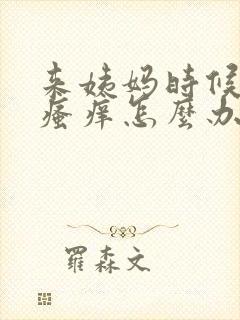 来姨妈时候
瘙痒怎麼办
羅森文